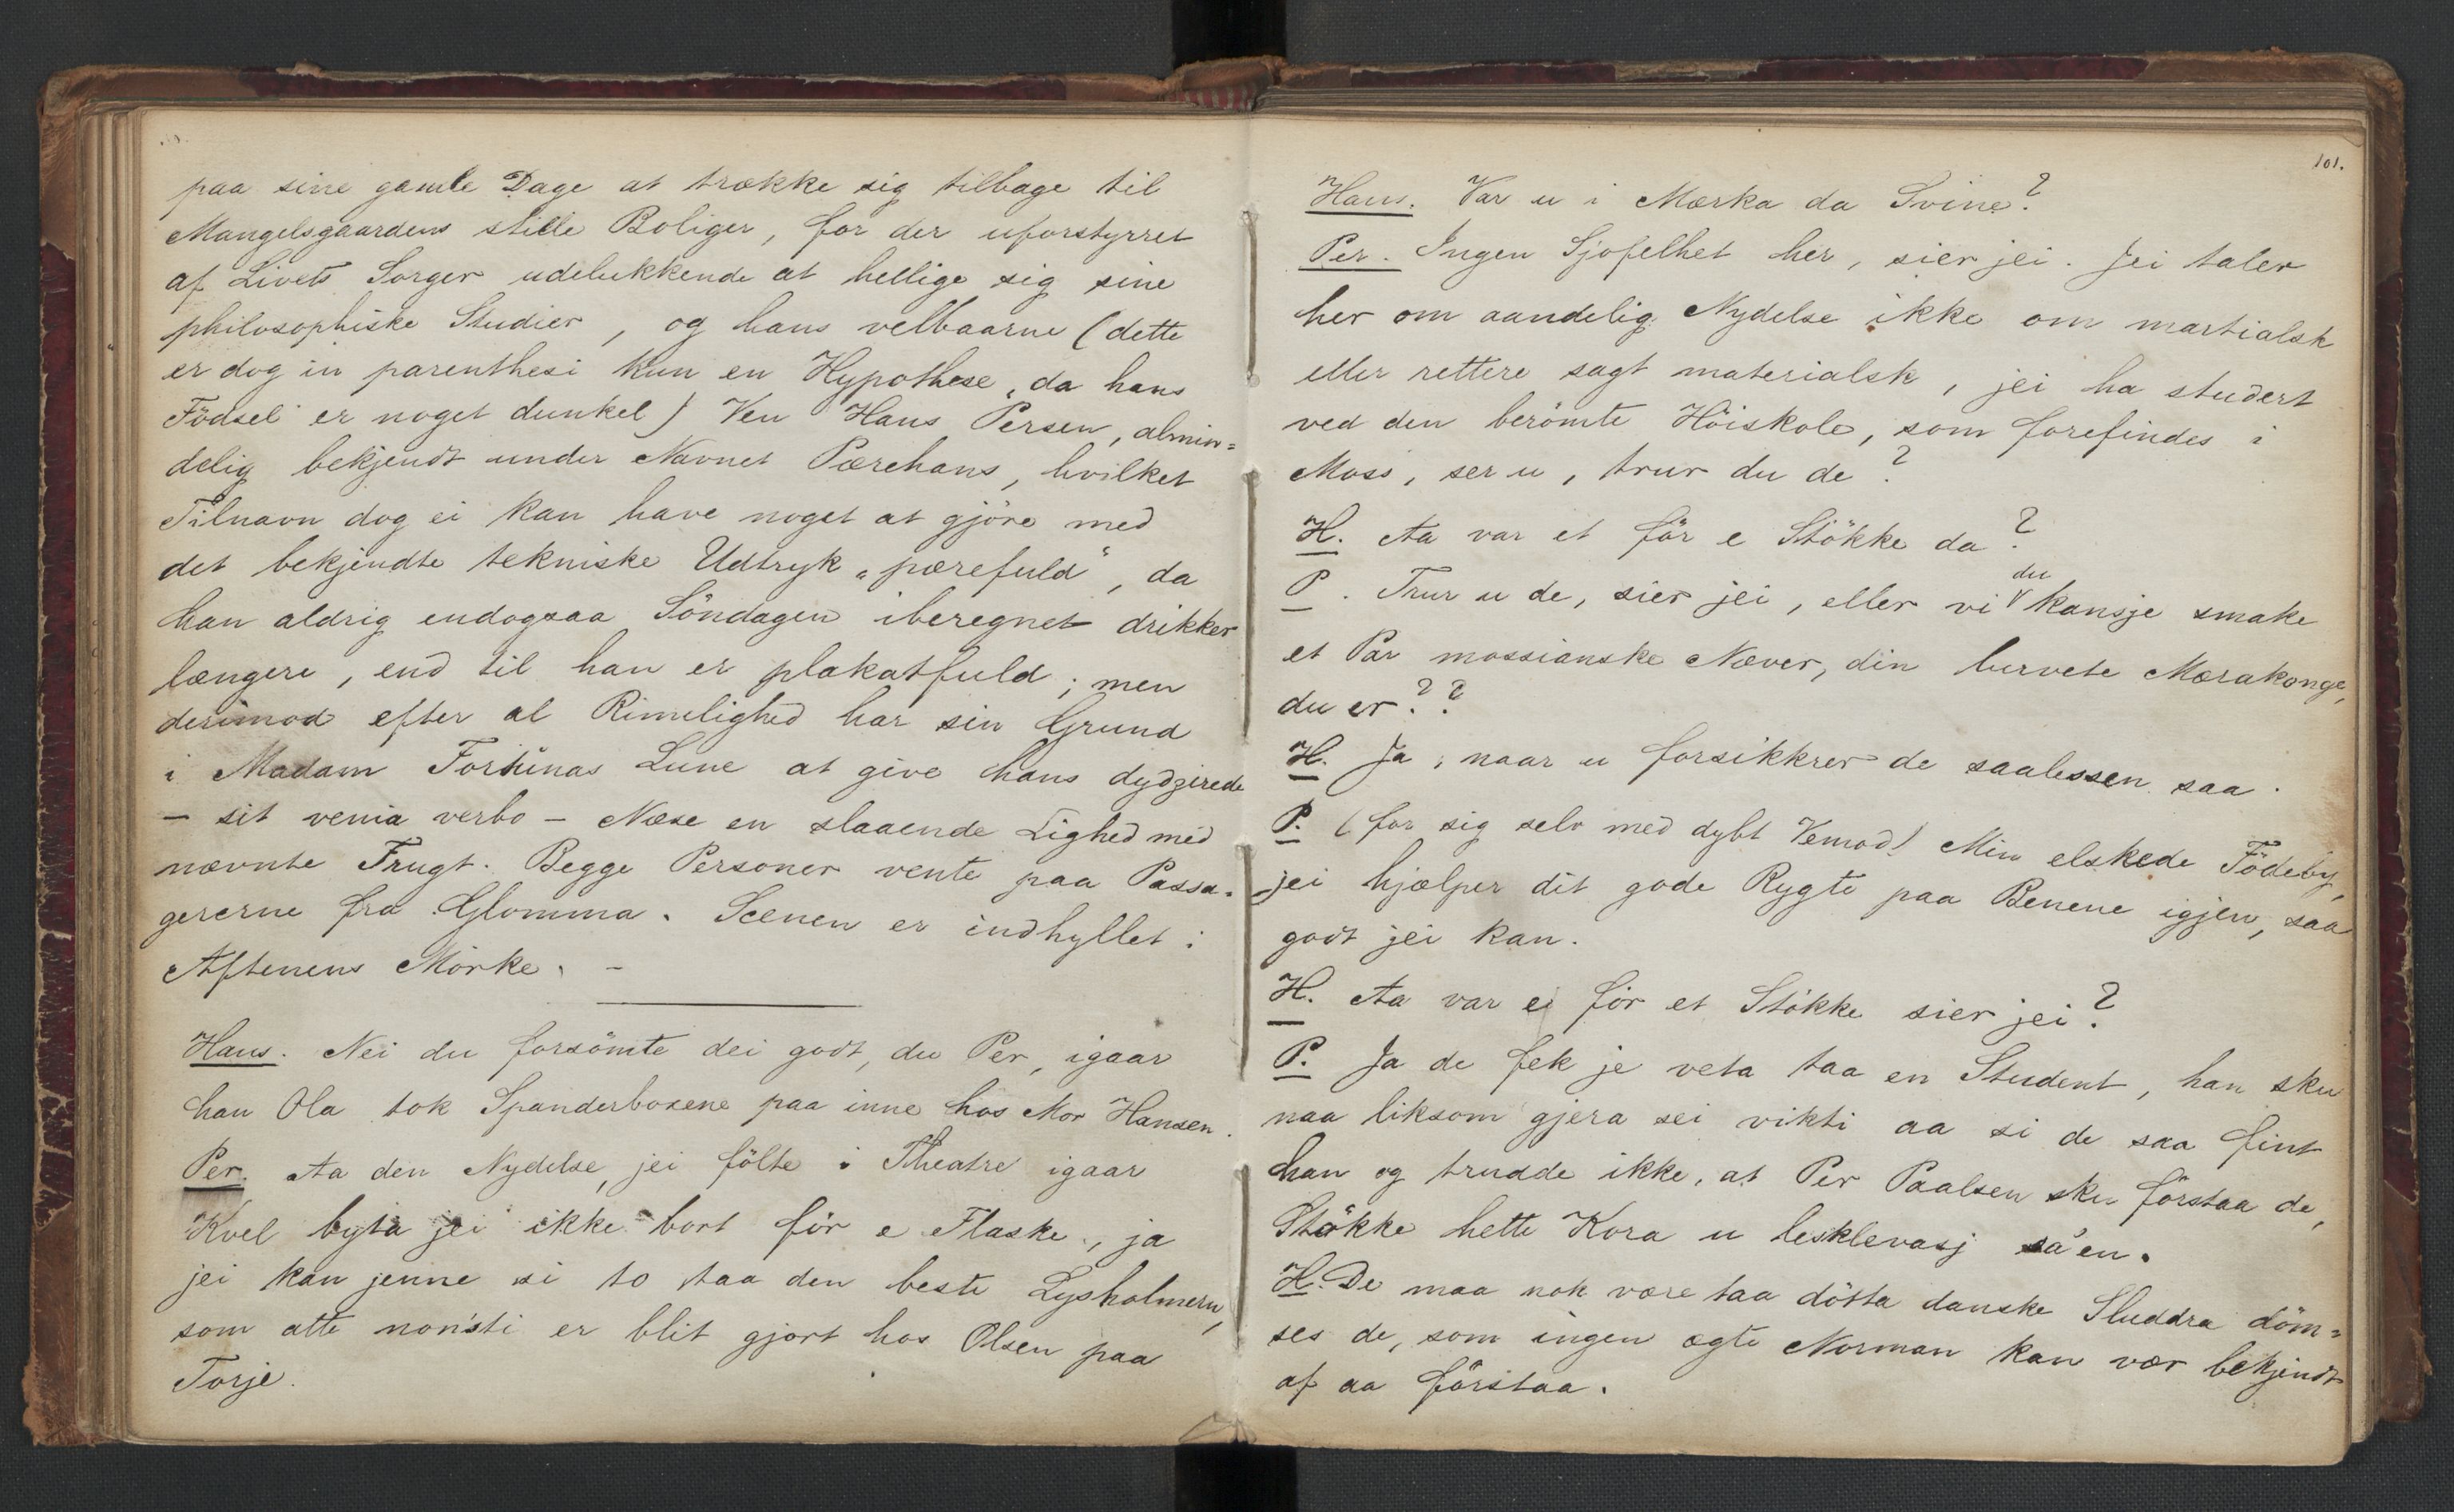 paa sine gamle Dage at trække sig tilbage til
Mangelsgaardens stille Boliger, for der uforstyrret
af Livets Sorger udelukkende at hellige sig sine
philosophiske Studier, og hans velbaarne (dette
er dog in parenthesi kun en Hypothese, da hans
Födsel er noget dunkel) Ven Hans Persen, almin=
delig bekjendt under Navnet Pærehans, hvilket
Tilnavn dog ei kan have noget at gjöre med
det bekjendte tekniske Udtryk „pærefuld“, da
han aldrig endogsaa Söndagen iberegnet drikker
længere, end til han er plakatfuld; men
derimod efter al Rimelighed har sin Grund
i Madam Fortunas Lune at give hans dydzirede
– sit venia verbo – Næse en slaaende Lighed med
nævnte Frugt. Begge Personer vente paa Passa=
gererne fra Glomma. Scenen er indhyllet i
Aftenens Mörke. –
Hans. Nei du forsömte dei godt, du Per, igaar
han Ola tok Spanderboxene paa inne hos Mor Hansen.
Per. Aa den Nydelse, jei fölte i Theatre igaar
Kvel byta jei ikke bort för e Flaske, ja
jei kan jenne si to taa den beste Lysholmern,
som atte nonsti er blit gjort hos Olsen paa
Torje.
101.
Hans. Var u i Mærka da Svine?
Per. Ingen Sjofelhet her, sier jei. Jei taler
her om aandelig Nydelse ikke om martialsk
eller rettere sagt materialsk, jei ha studert
ved den berömte Höiskole, som forefindes i
Moss, ser u, trur du de?
H. Aa var et för e Stökke da?
P. Trur u de, sier jei, eller vi du kansje smake
et Par mossianske Næver, din lurvete Mærakonge,
du er??
H. Ja, naar u forsikkrer de saalessen saa.
P. (for sig selv med dybt Vemod) Min elskede Födeby,
jei hjælper dit gode Rygte paa Benene igjen, saa
godt jei kan.
H. Aa var e för et Stökke sier jei?
P. Ja de fek je veta taa en Student, han sku
naa liksom gjera sei vikti aa si de saa fint
han og trudde ikke, at Per Paalsen sku förstaa de,
Stökke hette Kora u lesklevasj sa'en.
H. De maa nok være taa dötta danske Sluddra döm=
ses de, som ingen ægte Norman kan vær bekjendt
af aa förstaa.